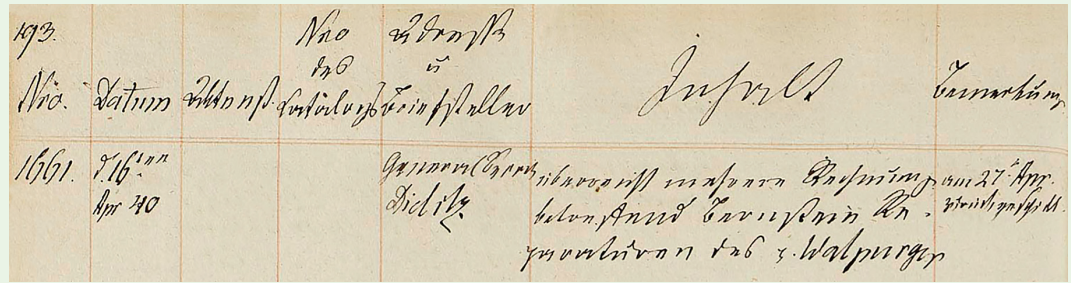 193.
Nro. Datum Aktenst. Nro des Catalogs Adresse u Briefsteller Inhalt Bemerkung
1661. d. 16ten Apr 40 General Direct. Dielitz
überreicht mehrere Rechnung.
betreffend Bernstein Re-
paraturen des H. Walpurger
am 27t Apr.
zurückgeschickt.